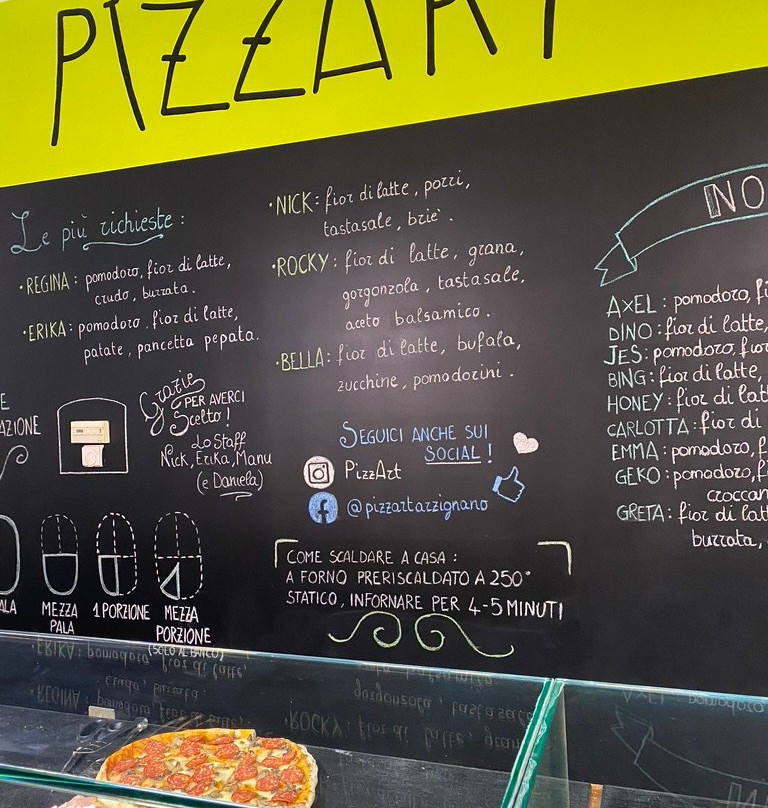 PIZZART
Le più richieste:
• REGINA: pomodoro, fior di latte,
crudo, burrata.
• ERIKA: pomodoro, fior di latte,
patate, pancetta pepata.
• NICK: fior di latte, porri,
tastasale, briè.
• ROCKY: fior di latte, grana,
gorgonzola, tastasale,
aceto balsamico.
• BELLA: fior di latte, bufala,
zucchine, pomodorini.
NO
AXEL: pomodoro, fi
DINO: fior di latte,
JES: pomodoro, fior
BING: fior di latte,
HONEY: fior di latt
CARLOTTA: fior di
EMMA: pomodoro, f
GEKO: pomodoro, fi
croccan
GRETA: fior di lat
burrata,
E
AZIONE
Grazie
PER AVERCI
Scelto!
Lo Staff
Nick, Erika, Manu
(e Daniela)
SEGUICI ANCHE SUI
SOCIAL!
PizzArt
@pizzartarzignano
COME SCALDARE A CASA:
A FORNO PRERISCALDATO A 250°
STATICO, INFORNARE PER 4-5 MINUTI
ALA
MEZZA
PALA
1 PORZIONE
MEZZA
PORZIONE
(SOLO AL BANCO)